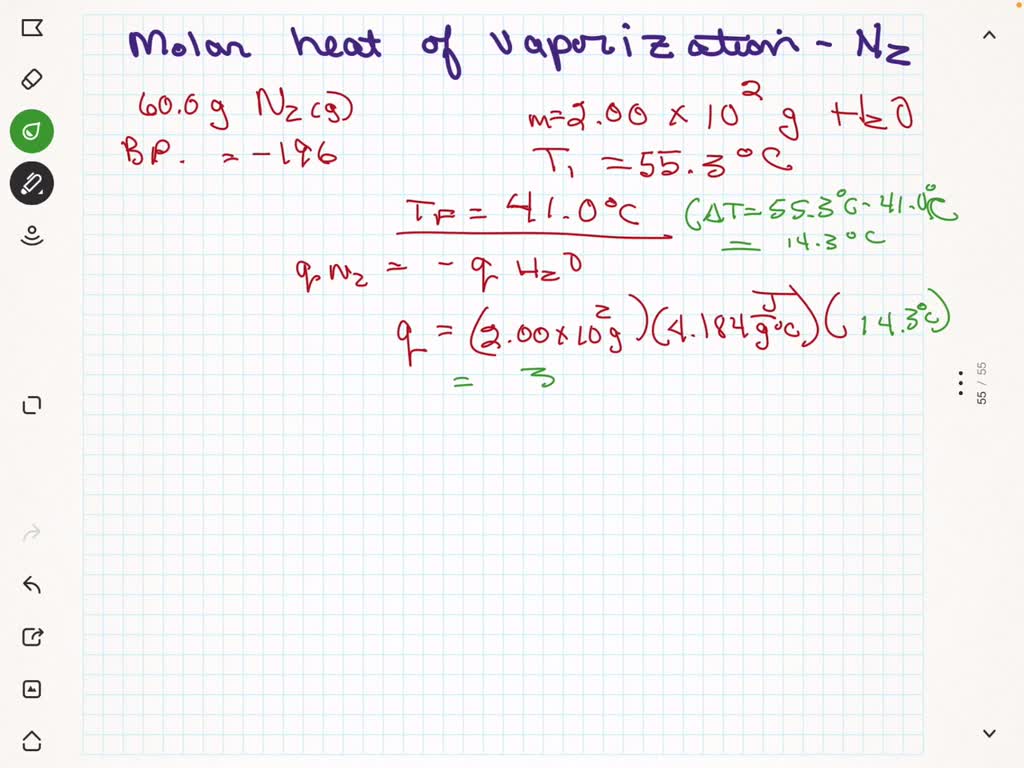 Molar heat of vaporization - N₂
60.0g N₂(g)
m=2.00 × 10² g H₂O
B.P. = -196
T₁ = 55.3°C
T_F = 41.0°C (ΔT=55.3°C-41.0°C
= 14.3°C
q N₂ = - q H₂O
q = (2.00×10²g)(4.184 J/g°C)(14.3°C)
= 3
55 / 55